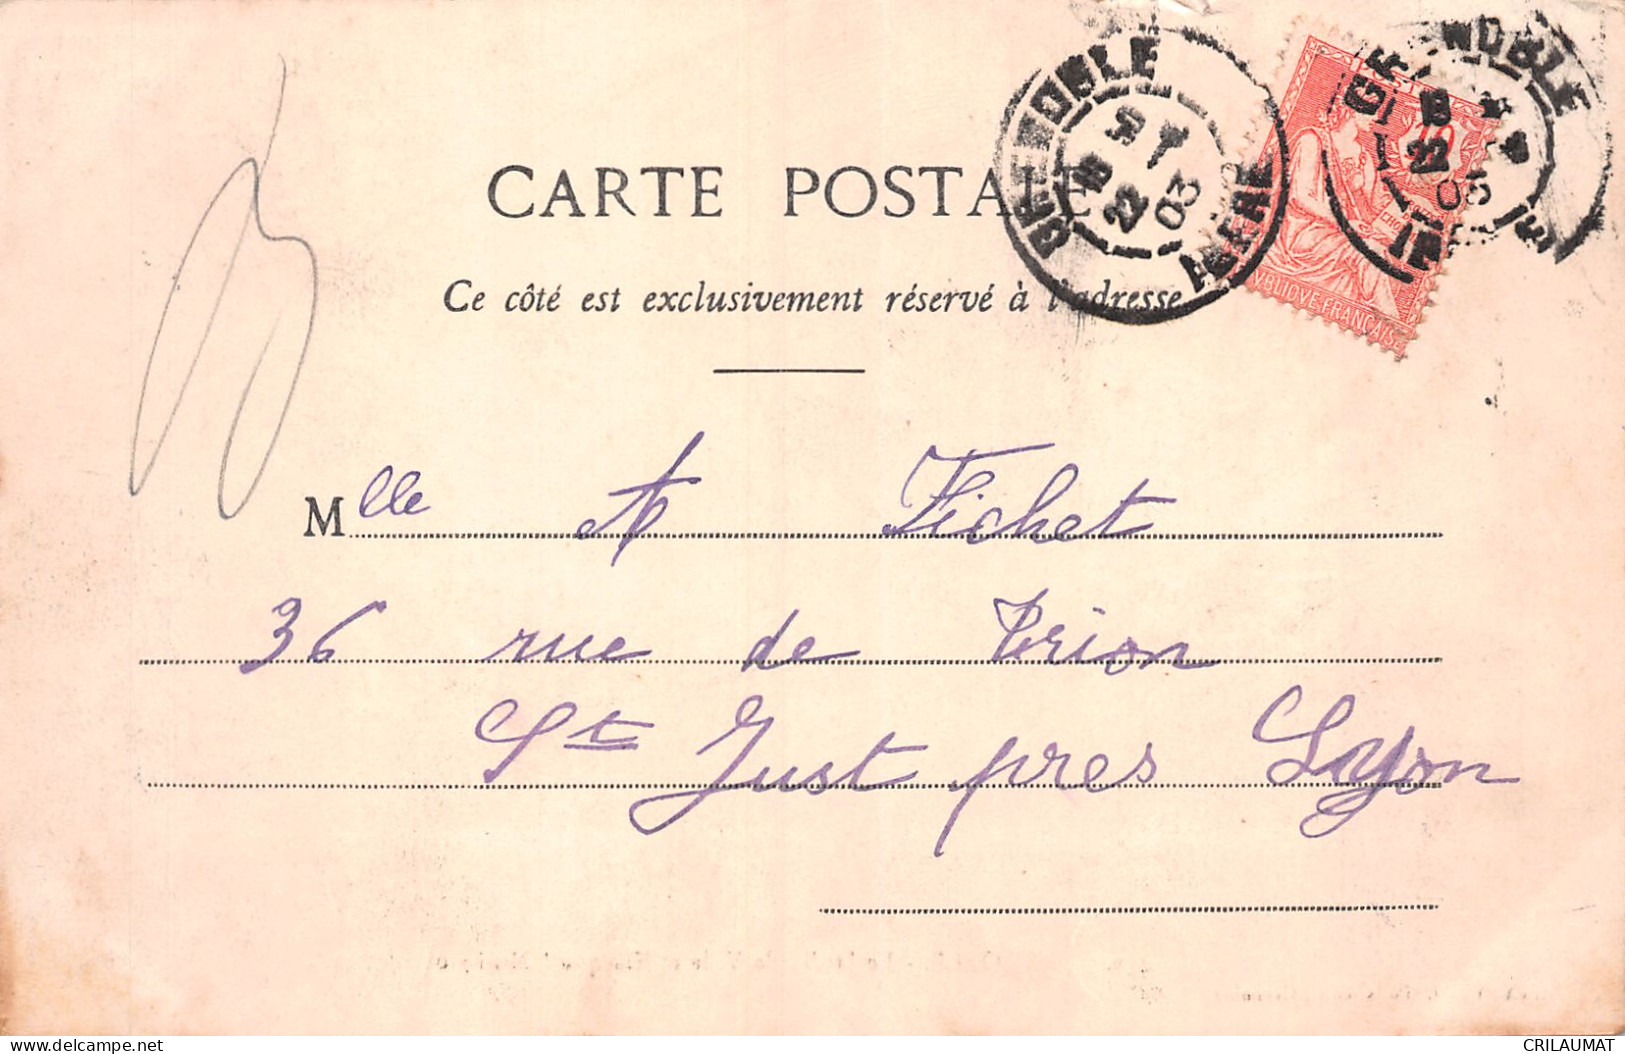 CARTE POSTALE
Ce côté est exclusivement réservé à l'adresse
GRENOBLE
18
22
03
ISERE
GRENOBLE
18
22
03
10
RÉPUBLIQUE FRANÇAISE
Mlle A Fichet
36 rue de Trion
St Just pres Lyon
delcampe.net
CRILAUMAT